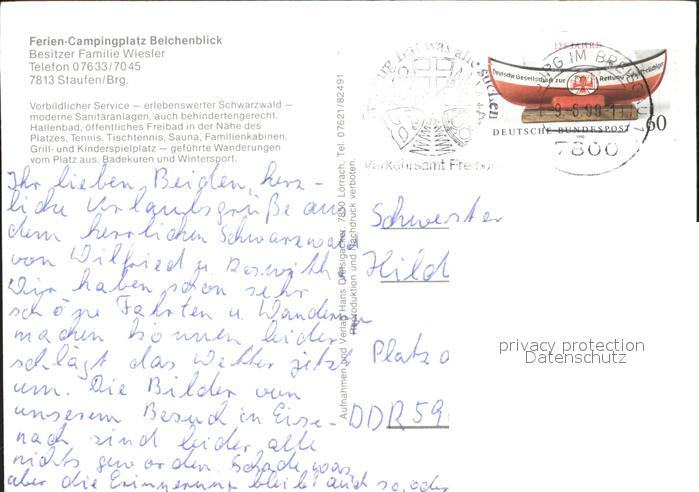 Ferien-Campingplatz Belchenblick
Besitzer Familie Wiesler
Telefon 07633/7045
7813 Staufen/Brg.
Vorbildlicher Service — erlebenswerter Schwarzwald —
moderne Sanitäranlagen, auch behindertengerecht.
Hallenbad, öffentliches Freibad in der Nähe des
Platzes, Tennis, Tischtennis, Sauna, Familienkabinen.
Grill- und Kinderspielplatz — geführte Wanderungen
vom Platz aus. Badekuren und Wintersport.
Ihr lieben Beiden, herz-
liche Urlaubsgrüße aus
dem herrlichen Schwarzwald
von Wilfried u. Roswitha
Wir haben schon sehr
schöne Fahrten u. Wanderungen
machen können leider
schlägt das Wetter jetzt
um. Die Bilder von
unserem Besuch in Eise-
nach sind leider alle
nichts geworden. Schade,
aber die Erinnerung bleibt auch so
Aufnahmen und Verlag Hans Dreisigacker, 7850 Lörrach, Tel. 07621/82491
Reproduktion und Nachdruck verboten.
hat was alle suchen
Verkehrsamt Freiburg
125 JAHRE
Deutsche Gesellschaft zur Rettung Schiffbrüchiger
DEUTSCHE BUNDESPOST
60
1990
BURG IM BREISGAU 1
7800
Schwester
Hild
Platz
DDR 59
privacy protection
Datenschutz